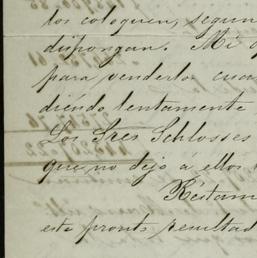 los coloquen, segun
dispongan. Mi o
para venderlos cua
diéndo lentamente
Los Sres Schlosses
que no dejo a ellos
Réstam
este pronto resultad